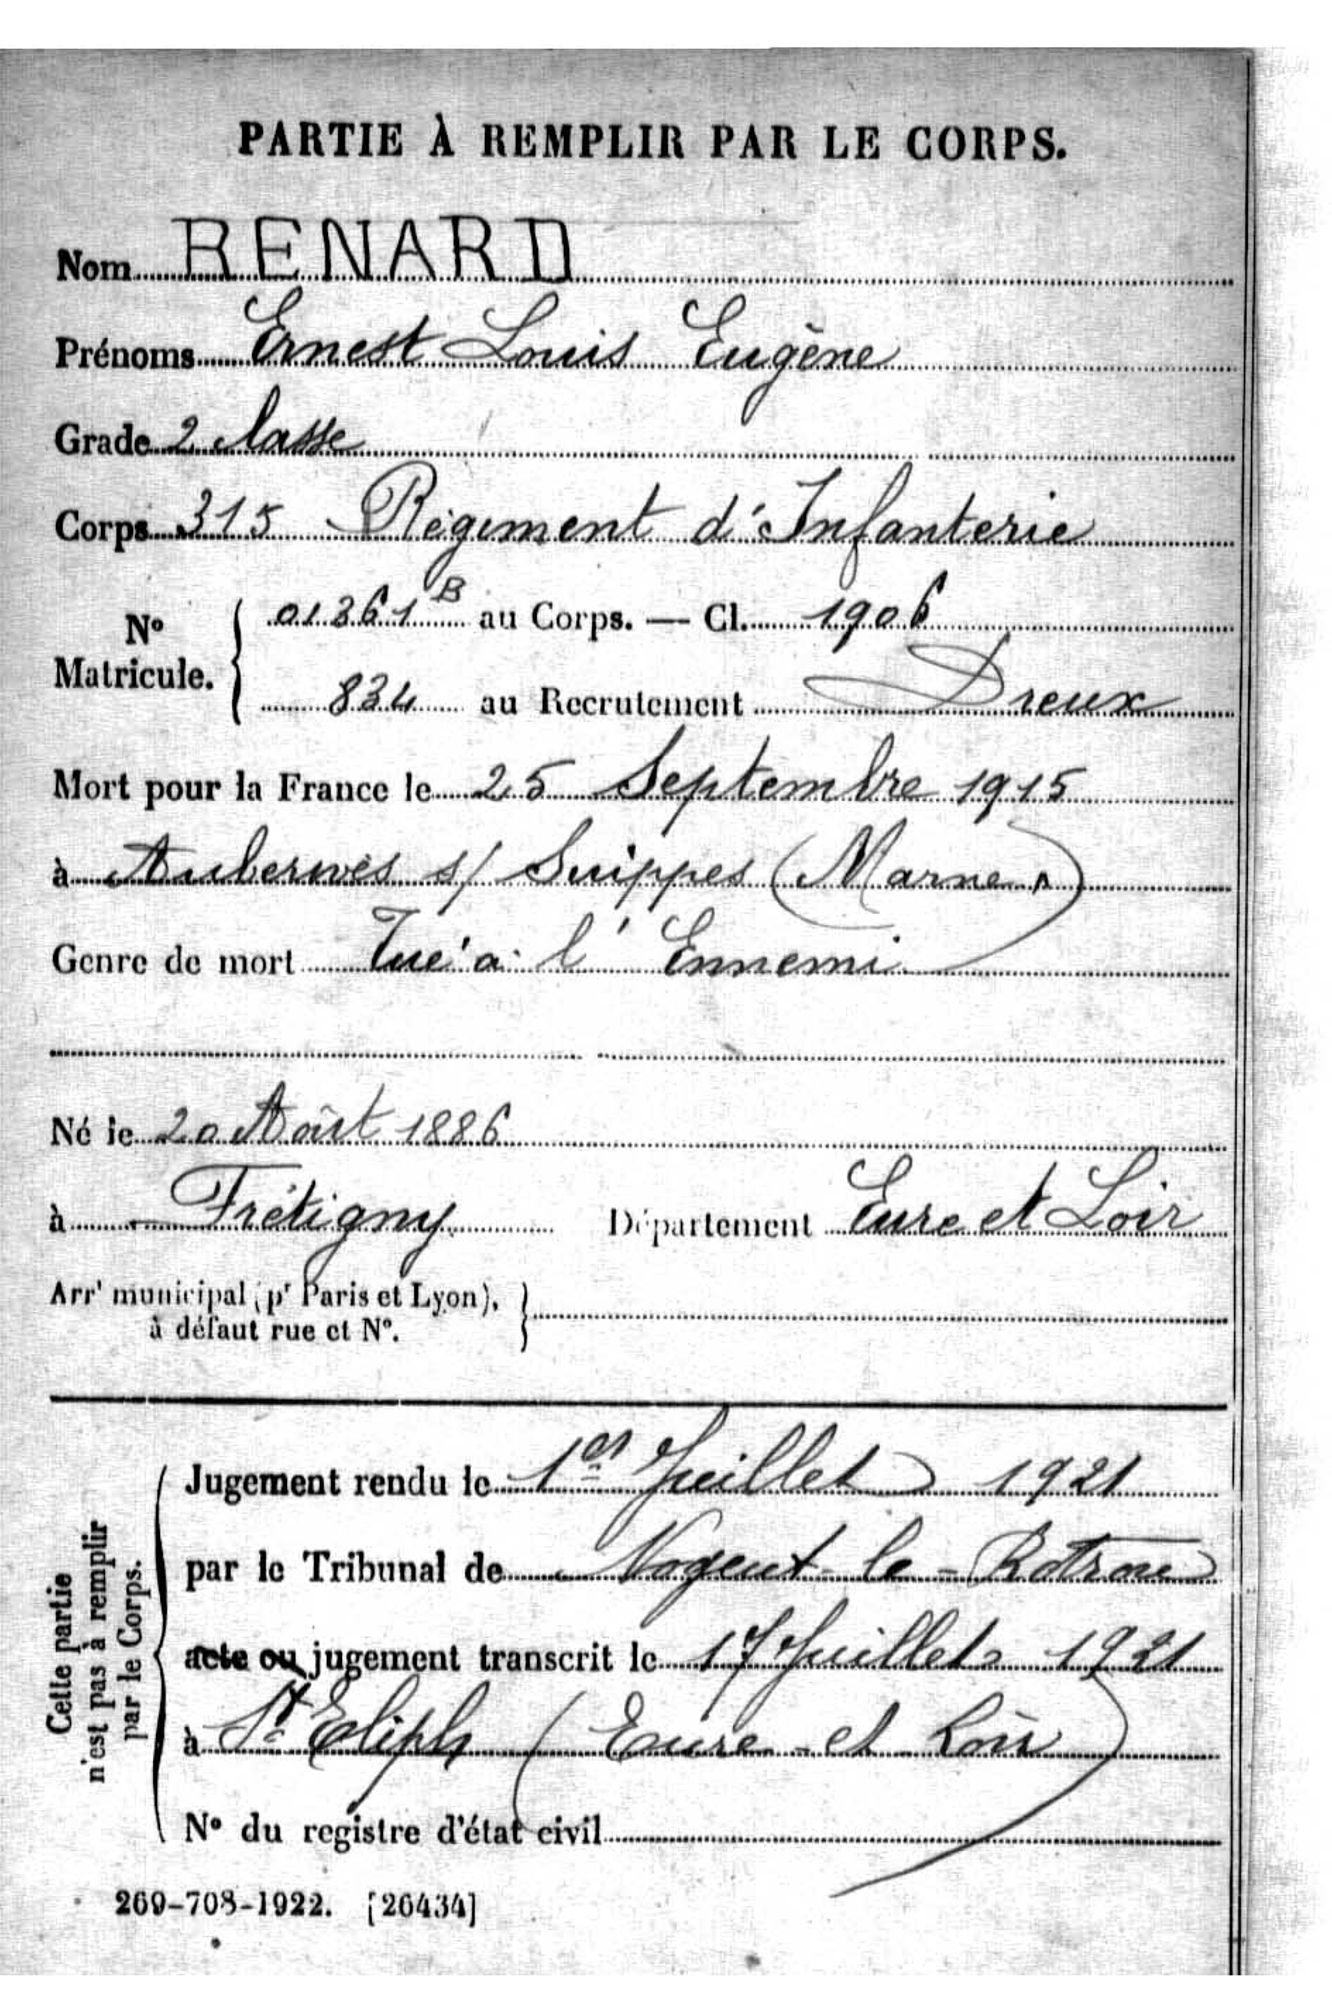 PARTIE À REMPLIR PAR LE CORPS.
Nom RENARD
Prénoms Ernest Louis Eugène
Grade 2 classe
Corps 315 Régiment d'Infanterie
N° Matricule. 01361 B au Corps. — Cl. 1906
834 au Recrutement Dreux
Mort pour la France le 25 Septembre 1915
à Auberives s/ Suippes (Marne)
Genre de mort Tué à l'Ennemi
Né le 20 Août 1886
à Frétigny Département Eure et Loir
Arrt municipal (pr Paris et Lyon),
à défaut rue et N°.
Cette partie
n'est pas à remplir
par le Corps.
Jugement rendu le 1er Juillet 1921
par le Tribunal de Nogent-le-Rotrou
acte ou jugement transcrit le 17 Juillet 1921
à St Eliph (Eure-et Loir)
N° du registre d'état civil
269-708-1922. [26434]